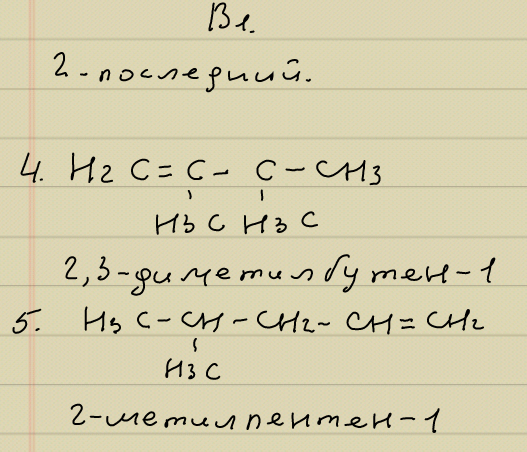 В1.
2-последний.
4. H2 C = C - C - CH3
H3 C H3 C
2,3-диметилбутен-1
5. H3 C - CH - CH2 - CH = CH2
H3 C
2-метилпентен-1